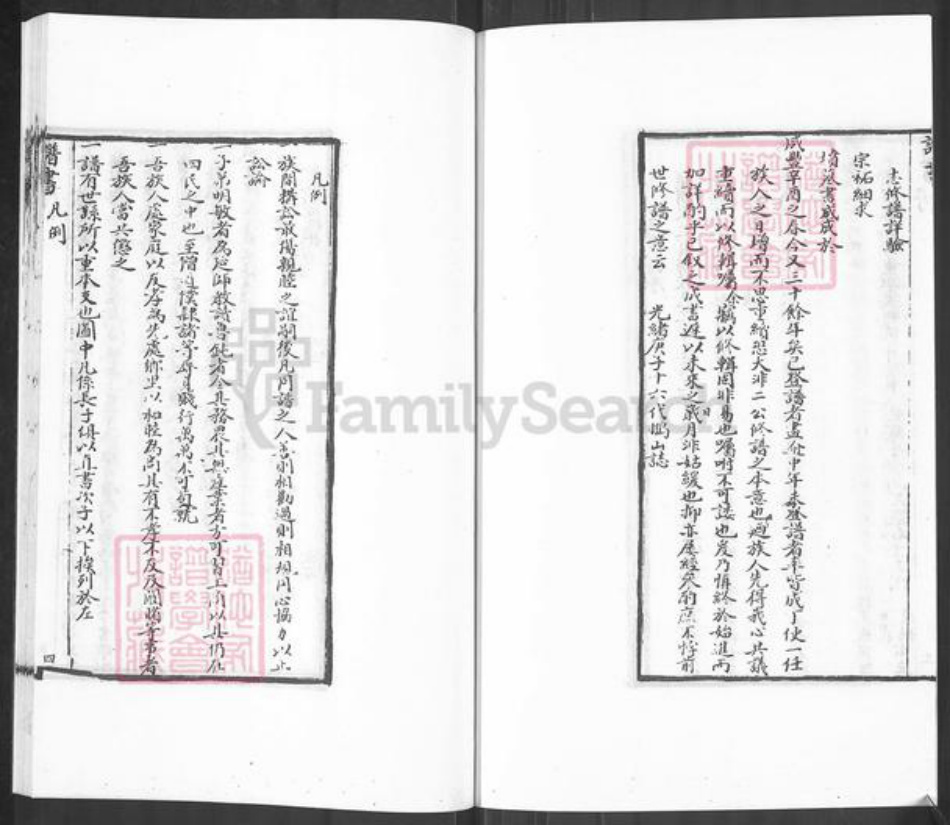 去修譜詳驗
宗祏細求
墳墓書成咸於
咸豐辛酉之春今又三十餘年矣已登譜者盡屬中年未登譜者率皆成丁使一任
族人之日增而不思重續恐大非二公修譜之本意也適族人先得我心共議
重續而以修輯囑余竊以修輯固非易也囑咐不可諉也爰乃慎終於始進而
加詳酌乎已叙之成書遲以未來之歲月非姑緩也抑亦屢經參酌庶不悖前
世修譜之意云 光緒庚子十六代 山誌
譜書 凡例
凡例
一族間搆訟最傷親睦之誼嗣後凡同譜之人善則相勸過則相規同心協力以止
訟端
一子弟明敏者為延師教讀魯鈍者令其務農其無産業者方可習工商以其仍在
四民之中也至隸諸等身賤行萬萬不可
一吾族人處家庭以友孝為先處鄉里以和睦為尚其有不孝不友及鬩牆等事者
吾族人當共懲之
一譜有世縣所以重本支也圖中凡係長子俱以直書次子以下挨列於左
四
FamilySearch